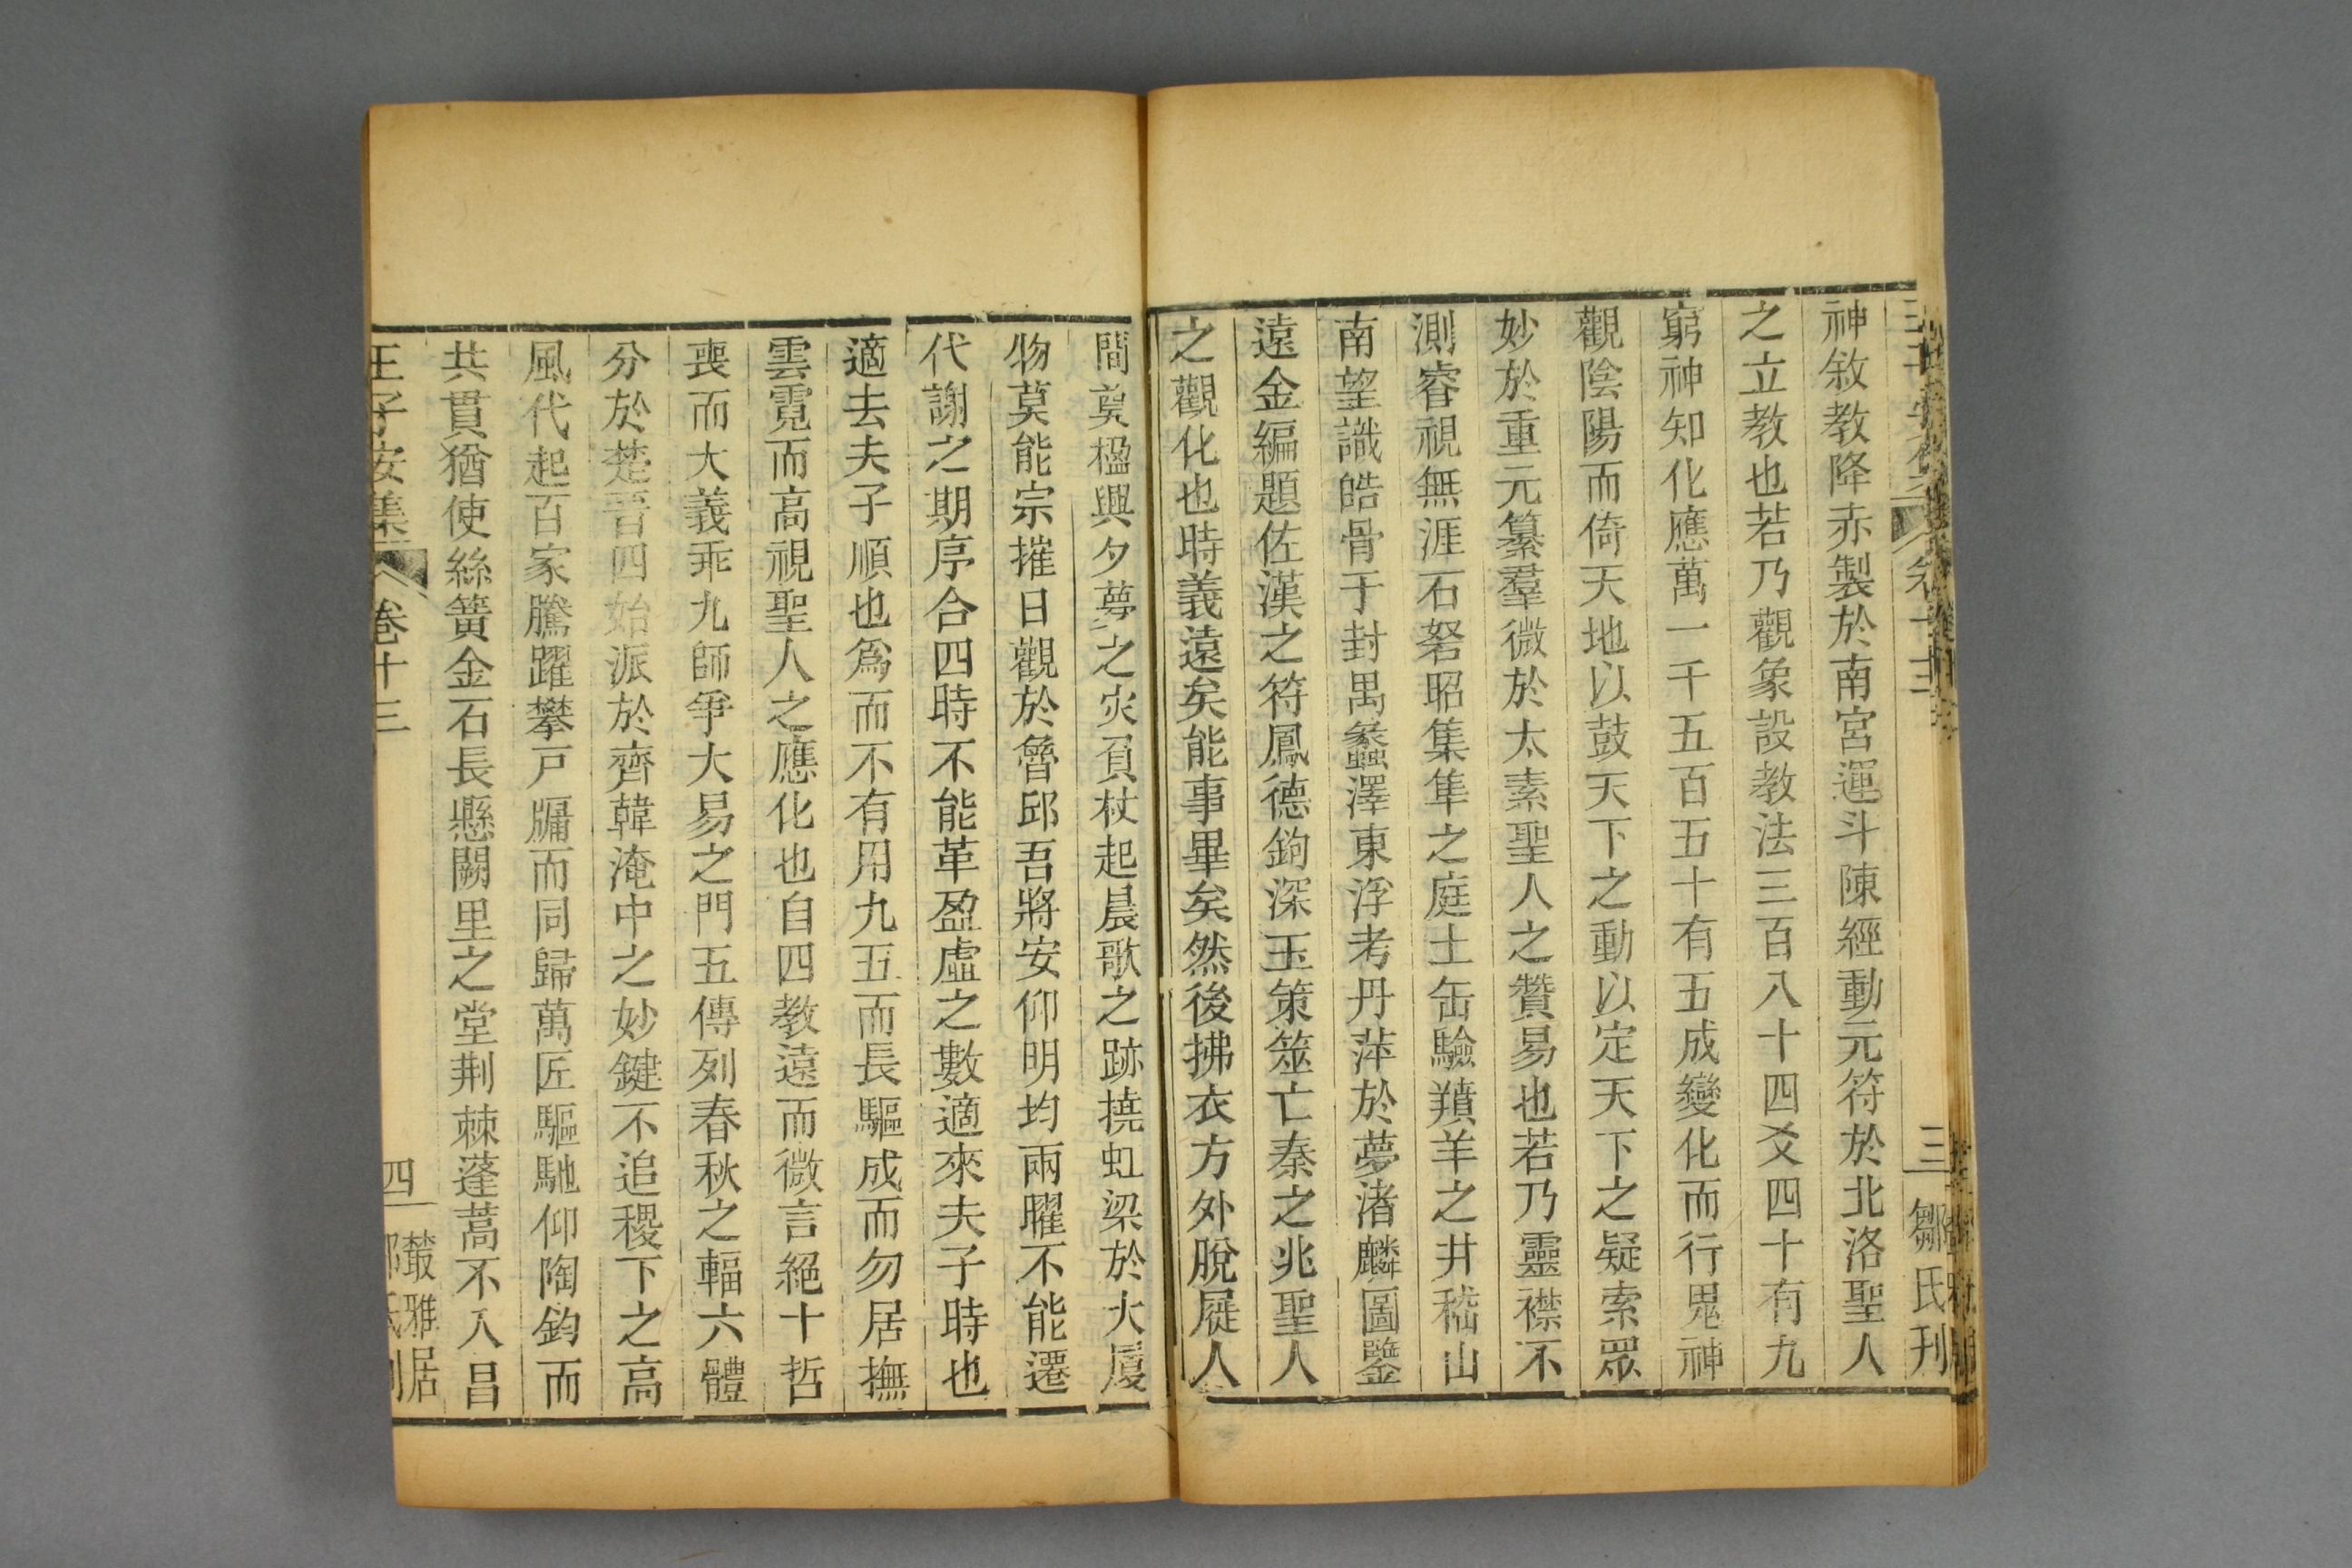 神敘教降赤製於南宮運斗陳經動元符於北洛聖人
之立教也若乃觀象設教法三百八十四爻四十有九
窮神知化應萬一千五百五十有五成變化而行鬼神
觀陰陽而倚天地以鼓天下之動以定天下之疑索眾
妙於重元纂羣微於太素聖人之贊易也若乃靈襟不
測睿視無涯石砮昭集隼之庭土缶驗羵羊之井嵇山
南望識皓骨于封禺蠡澤東浮考丹萍於夢渚麟圖鑒
遠金編題佐漢之符鳳德鉤深玉策筮亡秦之兆聖人
之觀化也時義遠矣能事畢矣然後拂衣方外脫屣人
間奠楹興夕夢之災負杖起晨歌之跡撓虹梁於大廈
物莫能宗摧日觀於魯邱吾將安仰明均兩曜不能遷
代謝之期序合四時不能革盈虛之數適來夫子時也
適去夫子順也為而不有用九五而長驅成而勿居撫
雲霓而高視聖人之應化也自四教遠而微言絕十哲
喪而大義乖九師爭大易之門五傳列春秋之輻六體
分於楚晉四始派於齊韓淹中之妙鍵不追稷下之高
風代起百家騰躍攀戶牖而同歸萬匠驅馳仰陶鈞而
共貫猶使絲簧金石長懸闕里之堂荆棘蓬蒿不入昌
王子安集 卷十三 四 叢雅居
三 鄒氏刊